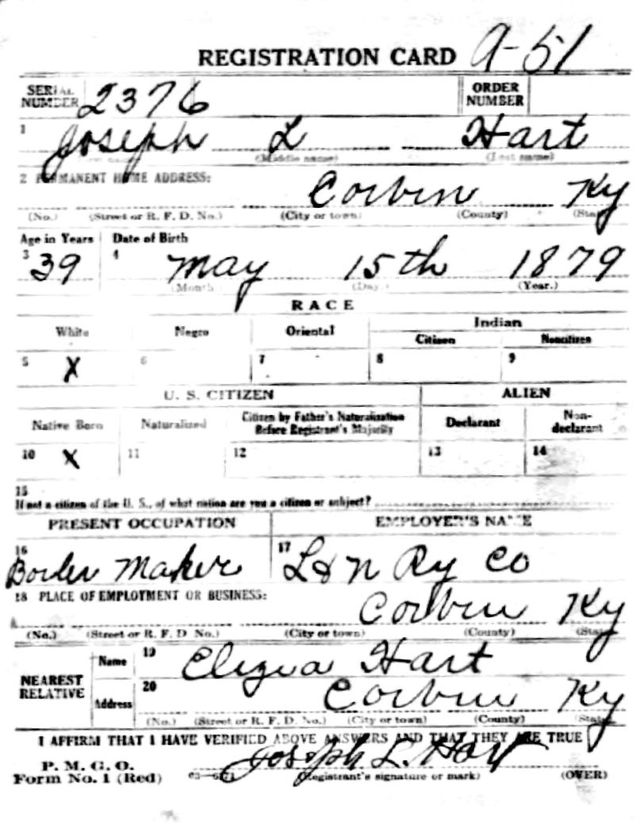 REGISTRATION CARD A-51
SERIAL NUMBER 2376 ORDER NUMBER
1 Joseph L Hart
(Middle name) (Last name)
2 PERMANENT HOME ADDRESS:
Corbin Ky
(No.) (Street or R. F. D. No.) (City or town) (County) (State)
Age in Years Date of Birth
3 39 4 May 15th 1879
(Month) (Day) (Year.)
RACE
White Negro Oriental Indian
Citizen Noncitizen
5 X 6 7 8 9
U. S. CITIZEN ALIEN
Native Born Naturalized Citizen by Father's Naturalization Before Registrant's Majority Declarant Non-declarant
10 X 11 12 13 14
15
If not a citizen of the U. S., of what nation are you a citizen or subject?
PRESENT OCCUPATION EMPLOYER'S NAME
16 Boiler Maker 17 L & N Ry Co
18 PLACE OF EMPLOYMENT OR BUSINESS:
Corbin Ky
(No.) (Street or R. F. D. No.) (City or town) (County) (State)
NEAREST RELATIVE Name 19 Hart
Address 20 Corbin Ky
(No.) (Street or R. F. D. No.) (City or town) (County) (State)
I AFFIRM THAT I HAVE VERIFIED ABOVE ANSWERS AND THAT THEY ARE TRUE
P. M. G. O. Joseph L. Hart
Form No. 1 (Red) (Registrant's signature or mark) (OVER)